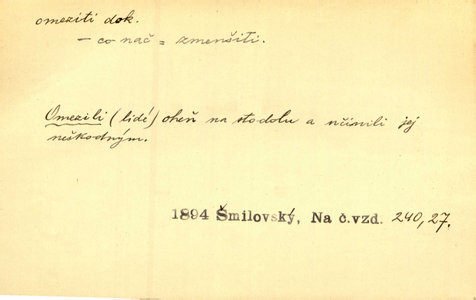 omeziti dok.
– co nač = zmenšiti.
Omezili (lidé) oheň na stodolu a učinili jej
neškodným.
1894 Šmilovský, Na č.vzd. 240,27.